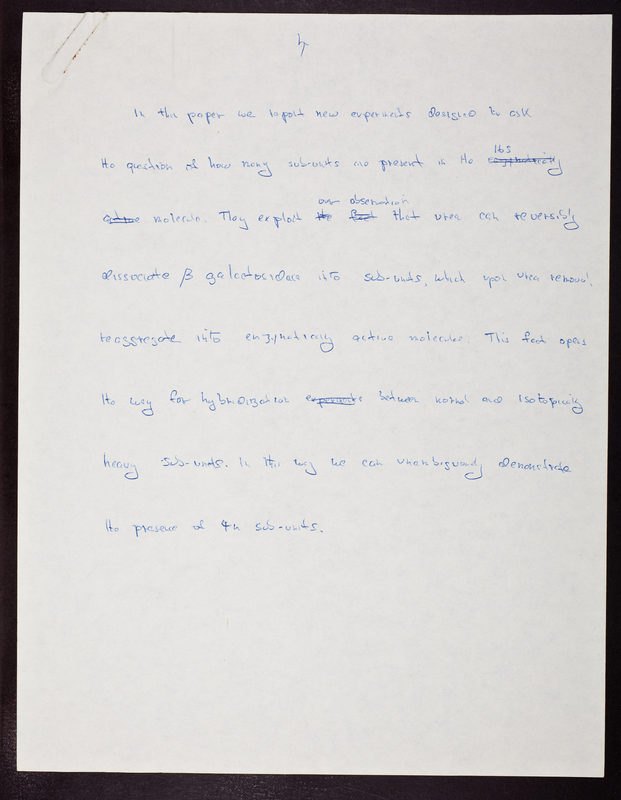 4
In this paper we report new experiments designed to ask
16s
the question of how many sub-units are present in the enzymatically
our observation
active molecule. They exploit the fact that urea can reversibly
dissociate β galactosidase into sub-units, which upon urea removal,
reaggregate into enzymatically active molecules. This fact opens
the way for hybridization experiments between normal and isotopically
heavy sub-units. In this way we can unambiguously demonstrate
the presence of 4n sub-units.